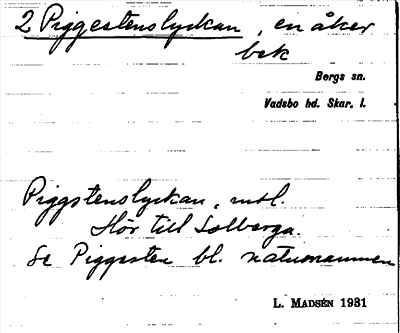 2 Piggestenslyckan, en åker
bek
Bergs sn.
Vadsbo hd. Skar. l.
Piggstenslyckan, mtl.
Hör till Solberga.
Se Piggesten bl. naturnamnen
L. MADSÉN 1931